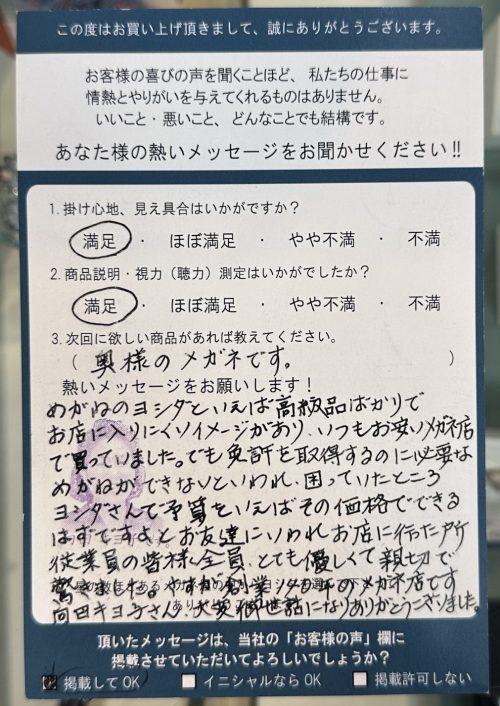 この度はお買い上げ頂きまして、誠にありがとうございます。
お客様の喜びの声を聞くことほど、私たちの仕事に
情熱とやりがいを与えてくれるものはありません。
いいこと・悪いこと、どんなことでも結構です。
あなた様の熱いメッセージをお聞かせください!!
1. 掛け心地、見え具合はいかがですか?
満足 ・ ほぼ満足 ・ やや不満 ・ 不満
2. 商品説明・視力（聴力）測定はいかがでしたか?
満足 ・ ほぼ満足 ・ やや不満 ・ 不満
3. 次回に欲しい商品があれば教えてください。
( 奥様のメガネです。 )
熱いメッセージをお願いします!
めがねのヨシダといえば高級品ばかりで
お店に入りにくいイメージがあり、いつもお安いメガネ店
で買っていました。でも免許を取得するのに必要な
めがねができないといわれ、困っていたところ
ヨシダさんで予算をいえばその価格でできる
はずですよとお友達にいわれお店に行った所
従業員の皆様全員、とても優しくて親切で
驚きました。 創業 のメガネ店です
向田キヨ子さん、大変御世話になりありがとうございました。
頂いたメッセージは、当社の「お客様の声」欄に
掲載させていただいてよろしいでしょうか?
掲載して OK イニシャルなら OK 掲載許可しない